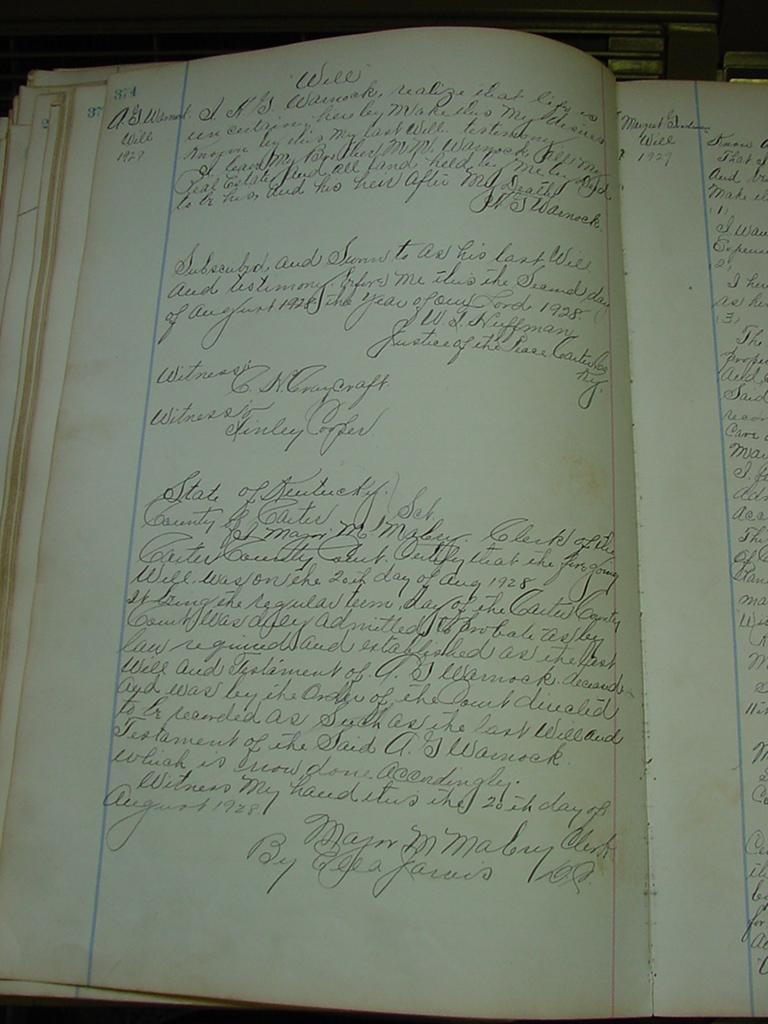 374
37
Will
A. J. Warnock
Will
1928
I A. J. Warnock, realize that life is
uncertain, hereby make this my desires
known by this my last Will. testimony
I leave My Brother M. M. Warnock All my
Real Estate, And all land held by me by Deed
to be his, and his heirs after My Death
A J Warnock.
Subscribed and Sworn to as his last Will
And testimony before me this the Second day
of August 1928 the Year of our Lord 1928
J W. J. Huffman
Justice of the Peace Carter Co
Ky.
Witness
C. N. Craycraft
Witness
Finley Cooper
State of Kentucky.
County of Carter Sct.
I Major M. Mabry Clerk of the
Carter County Court. Certify that the foregoing
Will was on the 20th day of Aug 1928
it being the regular term day of the Carter County
Court was duly admitted to probate as by
law required and established as the last
Will and Testament of A. J Warnock. deceased
and was by the Order of the Court directed
to be recorded as Such as the last Will and
Testament of the Said A. J Warnock.
which is now done accordingly.
Witness My hand this the 20th day of
August 1928
Major M Mabry Clerk
By Ella Jarvis D.C.
Margret
Will
1929
Know
That I
And
Make
(1)
I Wan
Expens
2
I her
as he
(3)
The
prope
and
Said
reco
Care